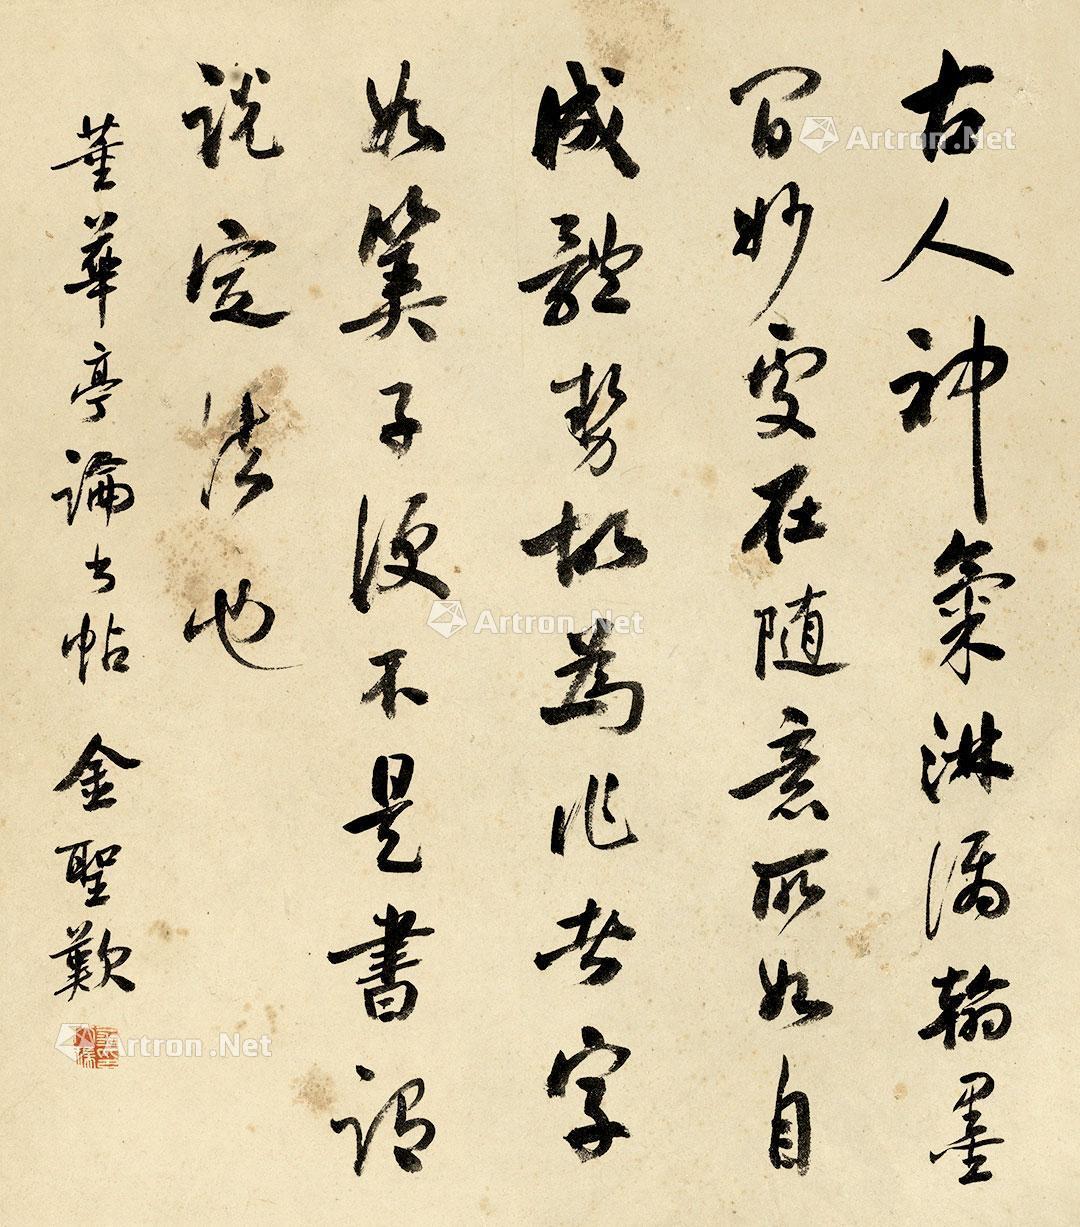 古人神氣淋漓翰墨
間妙處在隨意所如自
成體勢故為作者字
如算子便不是書謂
說定法也
董華亭論書帖 金聖歎
Artron.Net
Artron.Net
Artron.Net